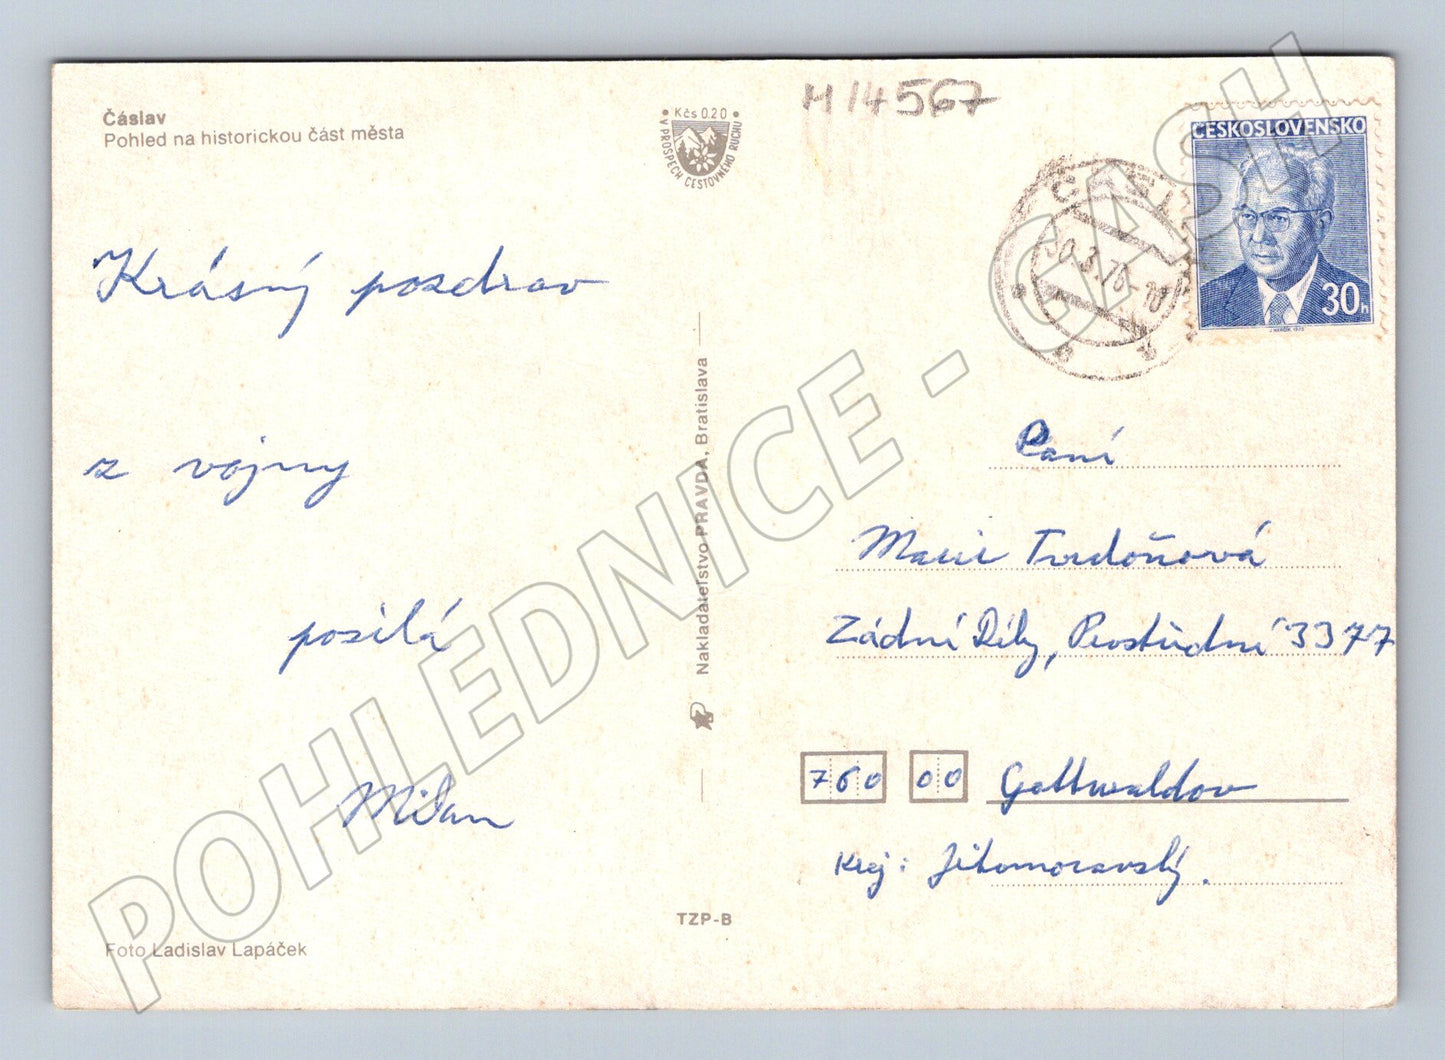 Čáslav
Pohled na historickou část města
Kčs 0.20
V PROSPĚCH CESTOVNÉHO RUCHU
M 14567
ČESKOSLOVENSKO
30h
Krásný pozdrav
z vojny
posílá
Milan
Nakladateľstvo PRAVDA, Bratislava
Paní
Marie Tvrdoňová
Zádní Díly, Prostřední 3377
760 00 Gottwaldov
Kraj: Jihomoravský.
TZP-B
Foto Ladislav Lapáček
POHLEDNICE - CASH